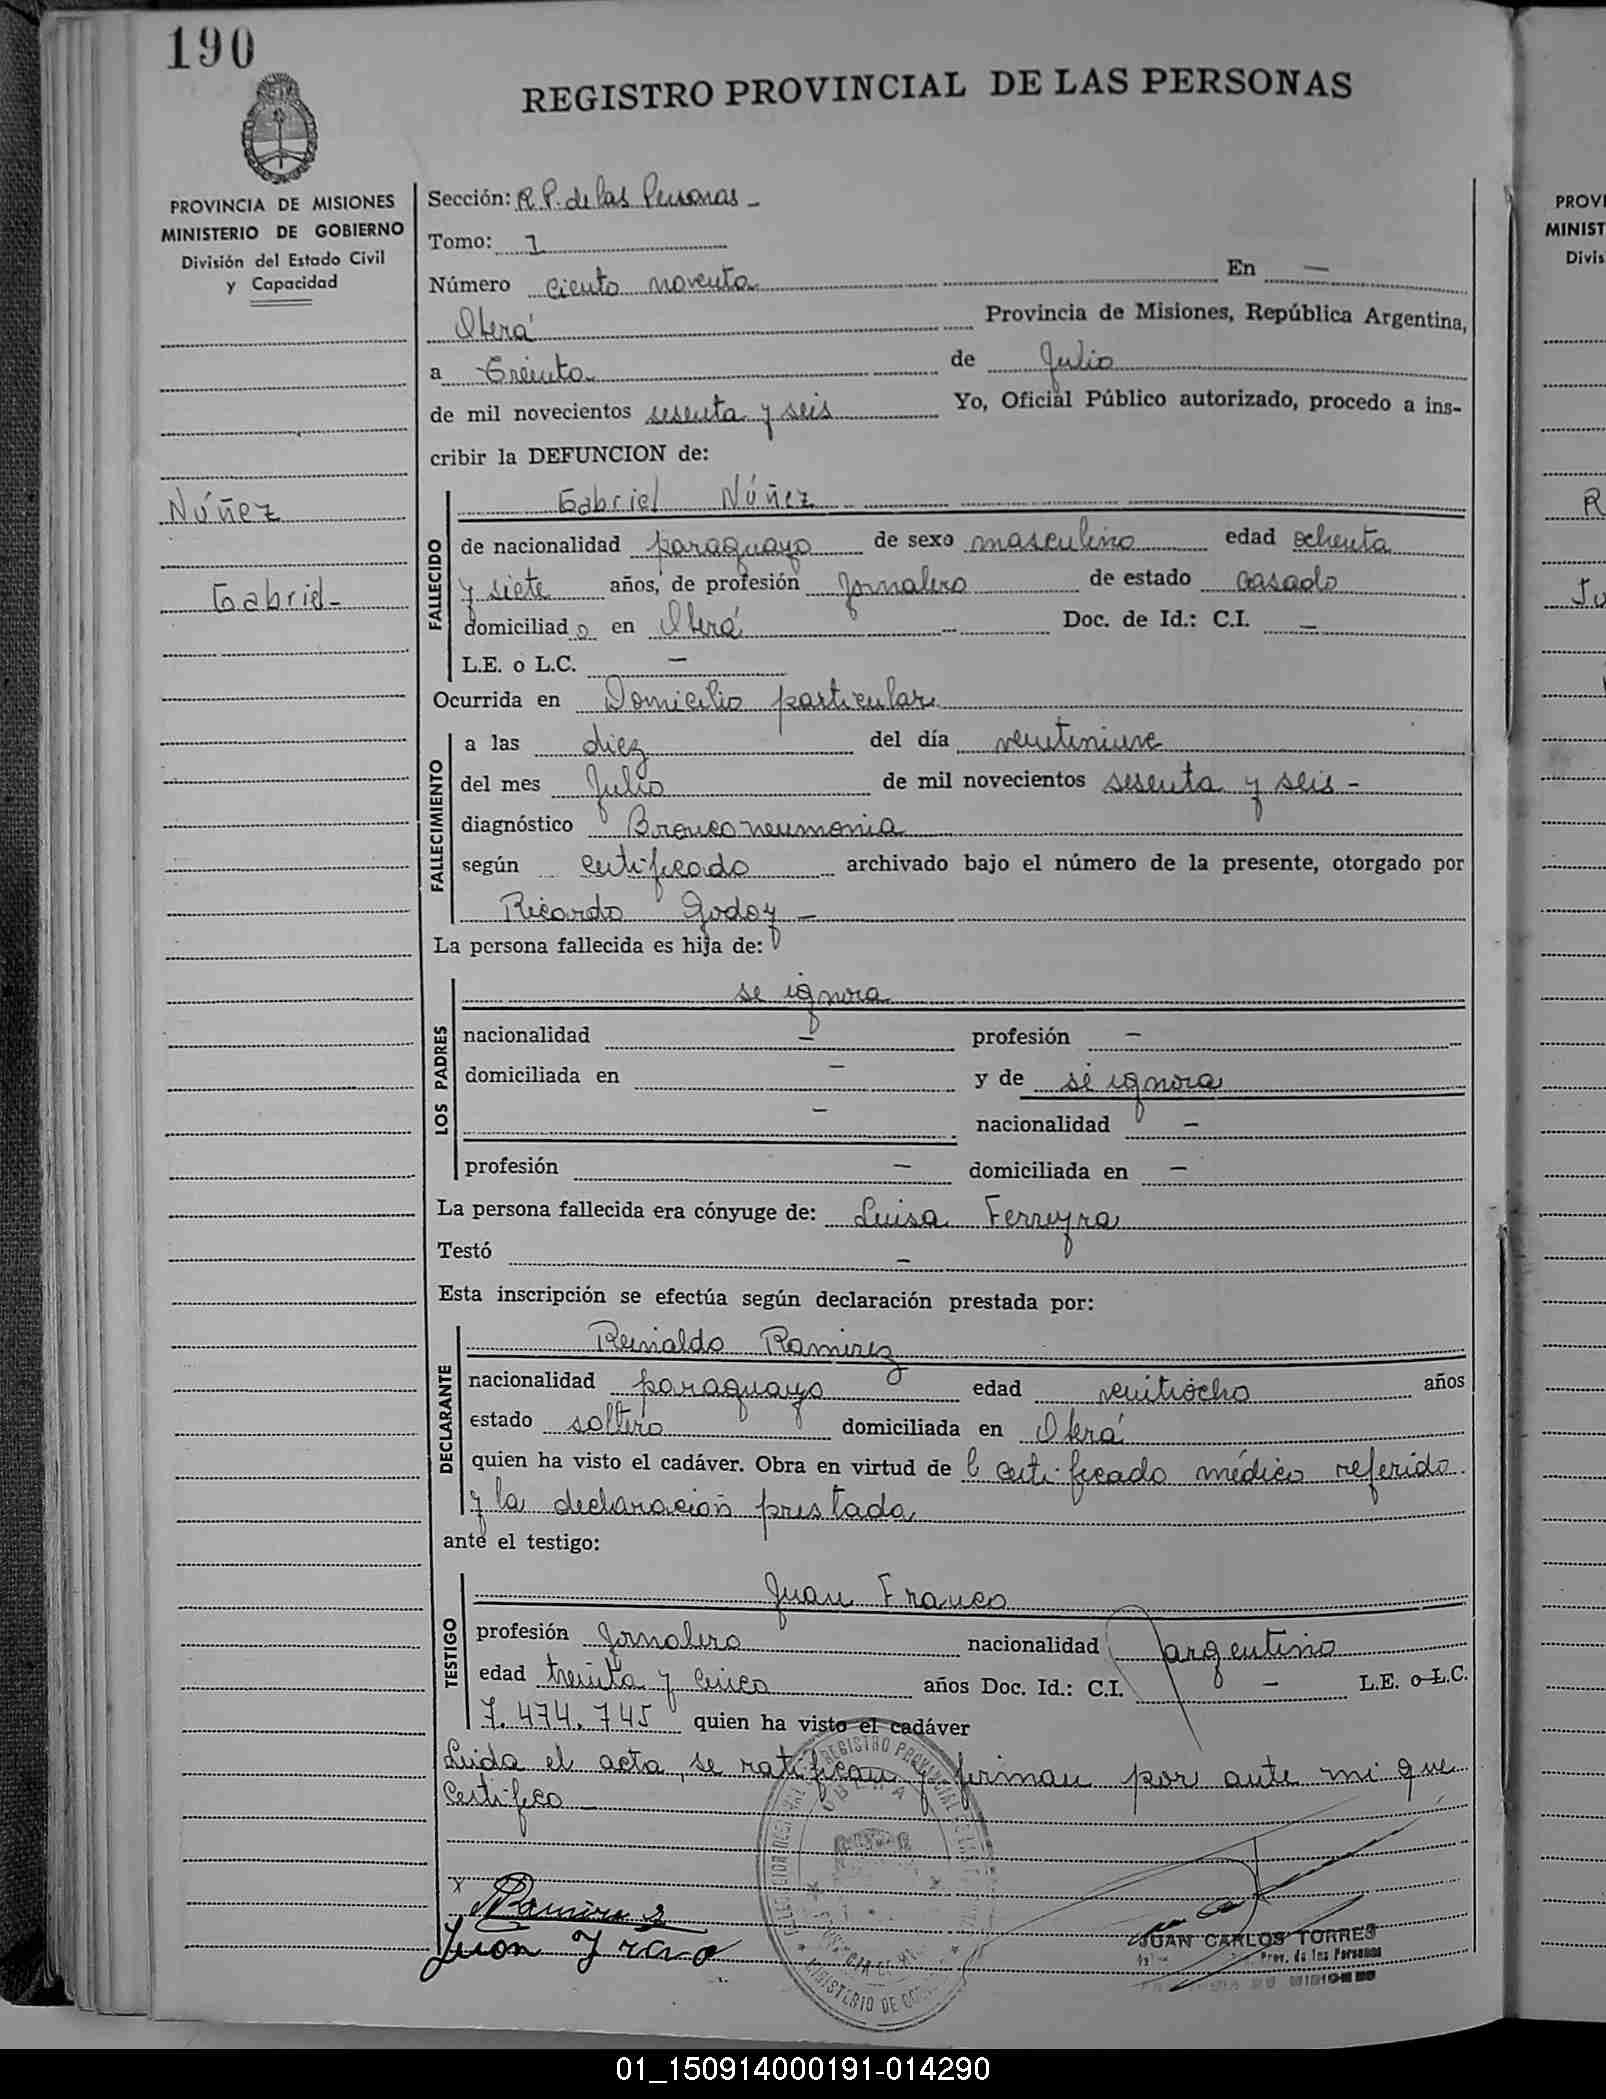 190
REGISTRO PROVINCIAL DE LAS PERSONAS
PROVINCIA DE MISIONES
MINISTERIO DE GOBIERNO
División del Estado Civil
y Capacidad
Núñez
Gabriel-
Sección: R. P. de las Personas -
Tomo: 1
Número ciento noventa En —
Oberá Provincia de Misiones, República Argentina,
a Treinta de Julio
de mil novecientos sesenta y seis Yo, Oficial Público autorizado, procedo a ins-
cribir la DEFUNCION de:
FALLECIDO
Gabriel Núñez
de nacionalidad paraguayo de sexo masculino edad ochenta
y siete años, de profesión Jornalero de estado casado
domiciliado en Oberá Doc. de Id.: C.I. —
L.E. o L.C. —
Ocurrida en Domicilio particular
FALLECIMIENTO
a las diez del día veintinueve
del mes Julio de mil novecientos sesenta y seis -
diagnóstico Bronconeumonia
según certificado archivado bajo el número de la presente, otorgado por
Ricardo Godoy —
La persona fallecida es hija de:
LOS PADRES
se ignora
nacionalidad — profesión —
domiciliada en — y de se ignora
— nacionalidad —
profesión — domiciliada en —
La persona fallecida era cónyuge de: Luisa Ferreyra
Testó —
Esta inscripción se efectúa según declaración prestada por:
DECLARANTE
Reinaldo Ramirez
nacionalidad paraguayo edad veintiocho años
estado soltero domiciliada en Oberá
quien ha visto el cadáver. Obra en virtud de l certificado médico referido
y la declaración prestada
ante el testigo:
TESTIGO
Juan Franco
profesión Jornalero nacionalidad argentino
edad treinta y cinco años Doc. Id.: C.I. — L.E. o L.C.
7.474.745 quien ha visto el cadáver
Leida el acta, se ratifican y firman por ante mi que
Certifico —
x Ramirez
Juan Franco
REGISTRO PROVINCIAL
OBERA
MINISTERIO DE
JUAN CARLOS TORRES
Prov. de las Personas
PROVI
MINIST
Divis
01_150914000191-014290